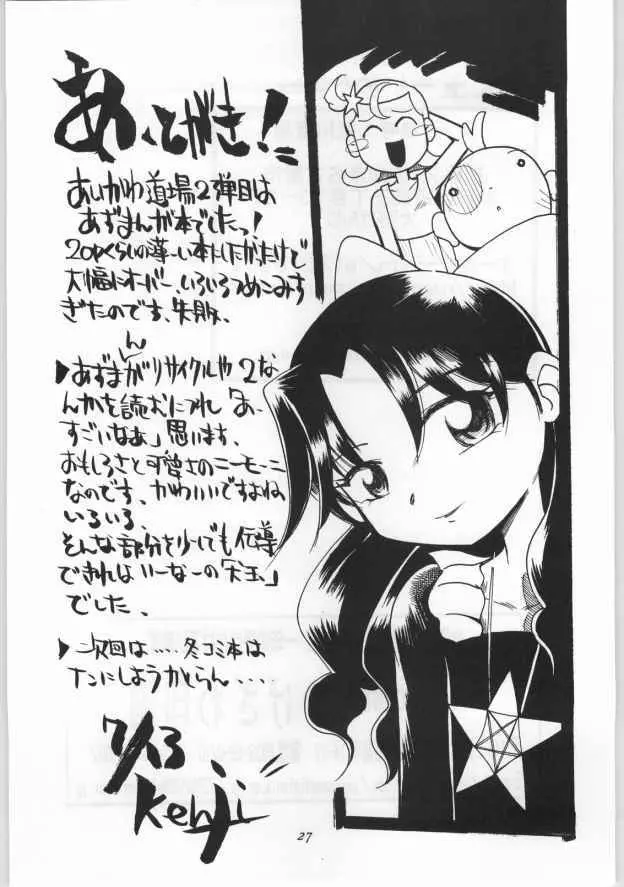 あ、とがき!
あしかわ道場2弾目は
あずまんが本でしたっ!
20pくらいの薄ーい本にしたかったけど
大幅にオーバー、いろいろつめこみす
ぎたのです、失敗、
あずまんがリサイクルや2な
んかを読むにつれ「あ、
すごいなあ」思います、
おもしろさと可愛さの
なのです、かわいいですよね
いろいろ、
そんな部分を少しでも伝導
できればいーなーの
でした、
次回は‥‥冬コミ本は
ナンにしようかしらん‥‥
7/13
Kenji
27